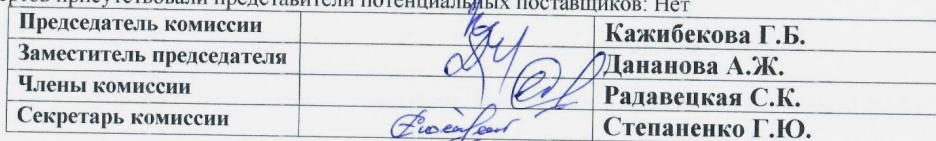 присутствовали представители потенциальных поставщиков: Нет
Председатель комиссии Кажибекова Г.Б.
Заместитель председателя Дананова А.Ж.
Члены комиссии Радавецкая С.К.
Секретарь комиссии Степаненко Г.Ю.